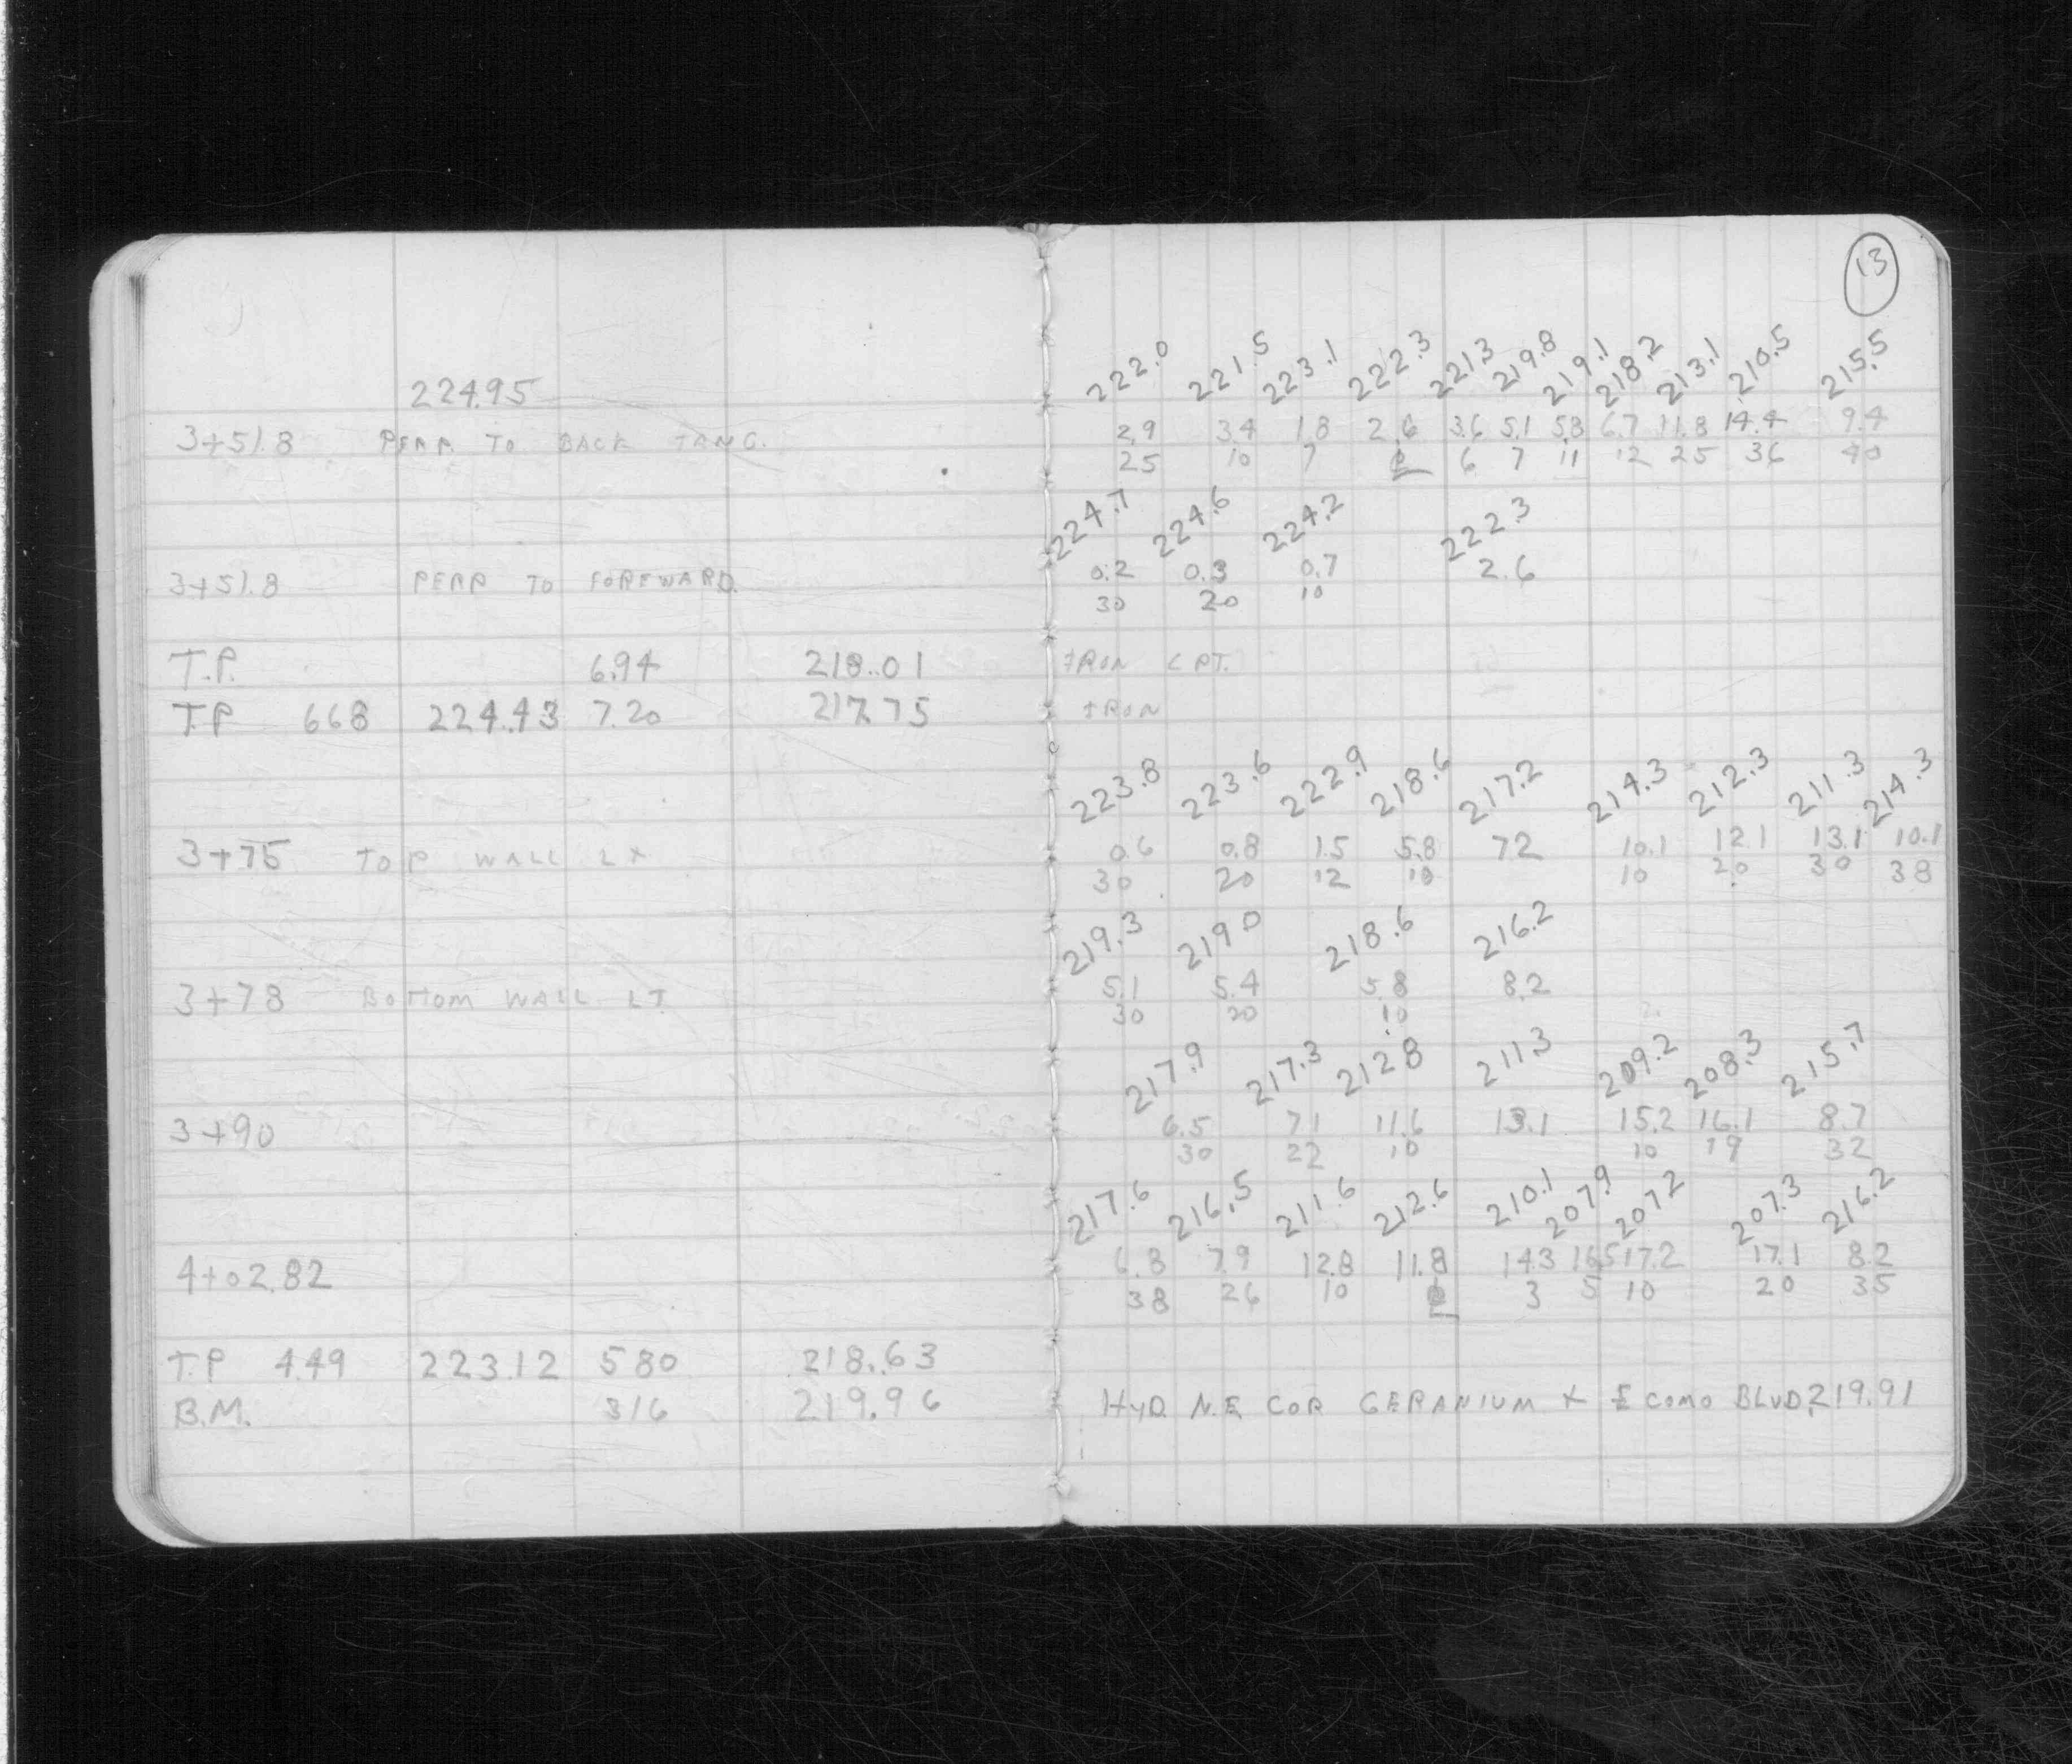 13
224.95
222.0 221.5 223.1 222.3 221.3 219.8 219.1 218.2 213.1 210.5 215.5
3+51.8 PERP. TO BACK TANG. 2.9 3.4 1.8 2.6 3.6 5.1 5.8 6.7 11.8 14.4 9.4
25 10 7 ⅊ 6 7 11 12 25 36 40
224.7 224.6 224.2 222.3
3+51.8 PERP TO FOREWARD. 0.2 0.3 0.7 2.6
30 20 10
T.P. 6.94 218.01 IRON C PT.
T.P 668 224.43 7.20 217.75 IRON
223.8 223.6 222.9 218.6 217.2 214.3 212.3 211.3 214.3
3+75 TOP WALL LT 0.6 0.8 1.5 5.8 7.2 10.1 12.1 13.1 10.1
30 20 12 10 10 20 30 38
219.3 219.0 218.6 216.2
3+78 BOTTOM WALL LT. 5.1 5.4 5.8 8.2
30 20 10
217.9 217.3 212.8 211.3 209.2 208.3 215.7
3+90 6.5 7.1 11.6 13.1 15.2 16.1 8.7
30 22 10 10 19 32
217.6 216.5 211.6 212.6 210.1 207.9 207.2 207.3 216.2
4+02.82 6.8 7.9 12.8 11.8 14.3 16.5 17.2 17.1 8.2
38 26 10 3 5 10 20 35
T.P 4.49 223.12 5.80 218.63
B.M. 3.16 219.96 HYD. N.E. COR GERANIUM & E COMO BLVD, 219.91